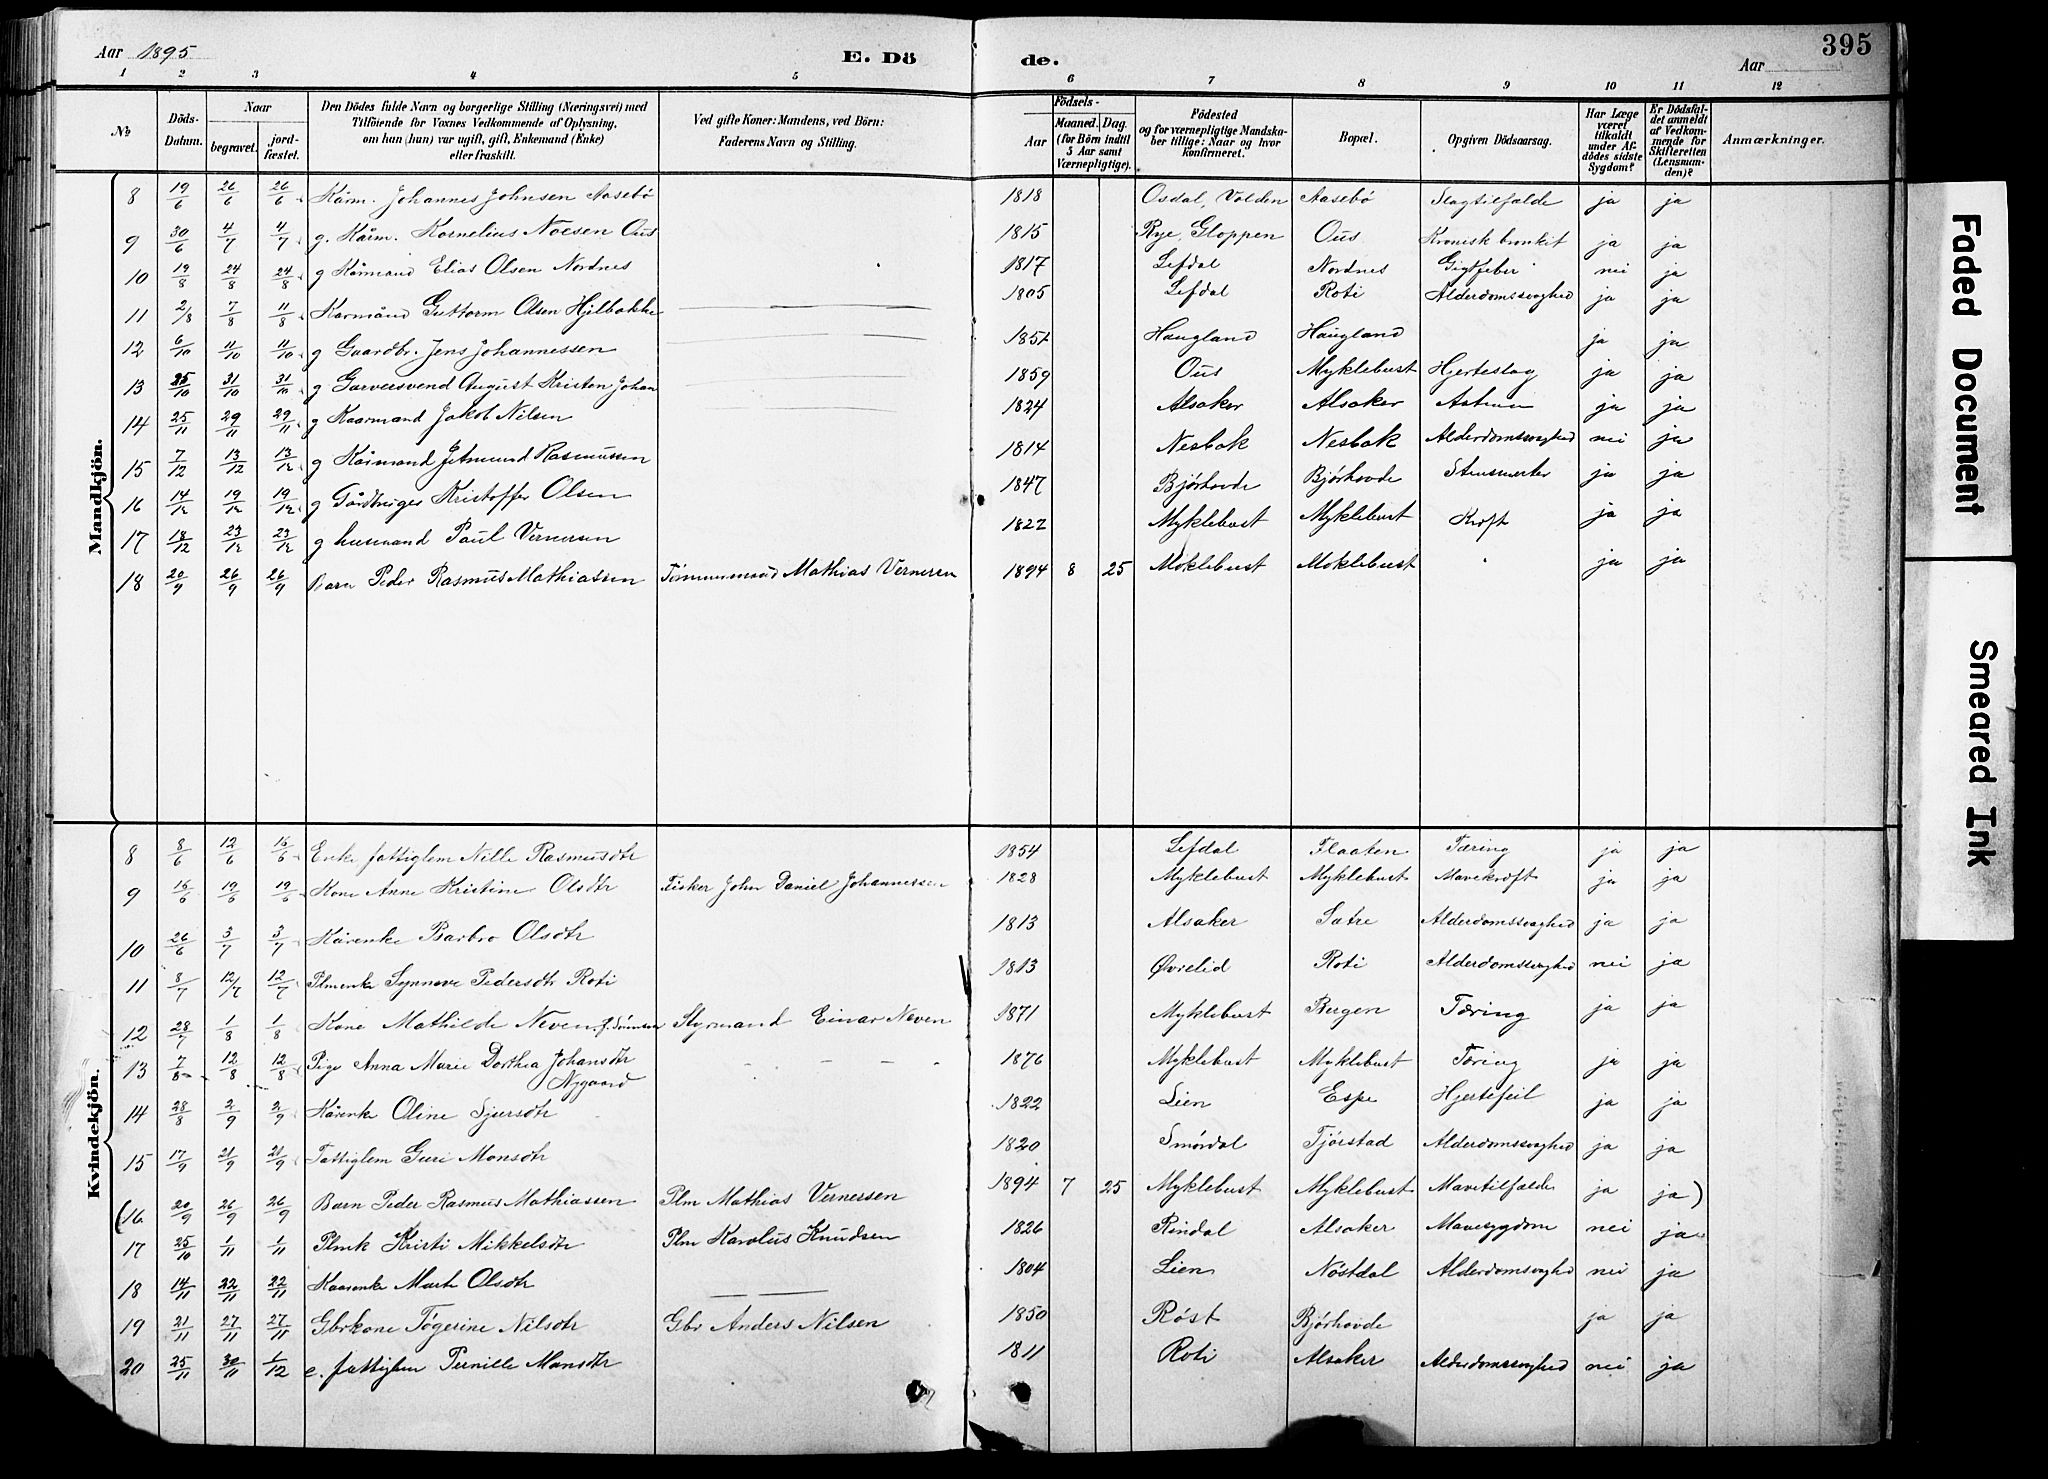 Aar 1895
E. Dö
de.
Aar
395
1 2 3 4 5 6 7 8 9 10 11 12
No
Döds-Datum.
Naar
begravet.
jord-fæstet.
Den Dödes fulde Navn og borgerlige Stilling (Næringsvei) med
Tilföiende for Voxnes Vedkommende af Oplysning,
om han (hun) var ugift, gift, Enkemand (Enke)
eller fraskilt.
Ved gifte Koner: Mandens, ved Börn:
Faderens Navn og Stilling.
Födsels-
Aar
Maaned. Dag.
(for Börn indtil 5 Aar samt Værnepligtige).
Födested
og for værnepligtige Mandska-
ber tillige: Naar og hvor
konfirmeret.
Bopæl.
Opgiven Dödsaarsag.
Har Læge været tilkaldt under Af-dödes sidste Sygdom?
Er Dödsfal-det anmeldt af Vedkom-mende for Skifteretten (Lensman-den)?
Anmærkninger.
Mandkjön.
8 19/6 26/6 26/6 Kårm. Johannes Johnsen Aasebø 1818 Osdal, Volden Aasebø Slagtilfælde ja ja
9 30/6 4/7 4/7 g. Kårm. Kornelius Noesen Ous 1815 Rye, Gloppen Ous Kronisk bronkit ja ja
10 19/8 24/8 24/8 g Kårmand Elias Olsen Nordnes 1817 Lefdal Nordnes Gigtfeber nei ja
11 2/8 7/8 11/8 Karmand Guttorm Olsen Hjelbakke 1805 Lefdal Roti Alderdomssvaghed ja ja
12 6/10 11/10 11/10 g Gaardbr. Jens Johannessen 1851 Haugland Haugland ja ja
13 25/10 31/10 31/10 g Garversvend August Kristen Johan 1859 Ous Myklebust Hjerteslag ja ja
14 25/11 29/11 29/11 g Kaarmand Jakob Nilsen 1824 Alsaker Alsaker ja ja
15 7/12 13/12 13/12 g Kårmand Jetmund Rasmussen 1814 Nesbak Nesbak Alderdomssvaghed nei ja
16 14/12 19/12 19/12 g Gårdbruger Kristoffer Olsen 1847 Bjørhovde Bjørhovde Stensmerter ja ja
17 18/12 23/12 23/12 g husmand Paul Vernersen 1822 Myklebust Myklebust Kræft ja ja
18 20/9 26/9 26/9 Barn Peder Rasmus Mathiassen Tømmermand Mathias Vernersen 1894 8 25 Moklebust Moklebust ja ja
Kvindekjön.
8 8/6 12/6 15/6 Enke fattiglem Nille Rasmusdtr 1854 Lefdal Flaaten Tæring ja ja
9 15/6 19/6 19/6 Kone Anne Kristine Olsdtr Fisker John Daniel Johannessen 1828 Myklebust Myklebust Mavekræft ja ja
10 26/6 3/7 3/7 Kårenke Barbro Olsdtr 1813 Alsaker Sætre Alderdomssvaghed ja ja
11 8/7 12/7 12/7 Plmenke Synnøve Pedersdtr Roti 1813 Øvrelid Roti Alderdomssvaghed nei ja
12 28/7 1/8 1/8 Kone Mathilde Neven Styrmand Einar Neven 1871 Myklebust Bergen Tæring ja ja
13 7/8 12/8 12/8 Pige Anna Marie Dorthea Johansdtr 1876 Myklebust Myklebust Tæring ja ja
Nygaard
14 28/8 2/9 2/9 Kårenke Oline Sjursdtr 1822 Lien Espe Hjertefeil ja ja
15 17/9 21/9 21/9 Fattiglem Guri Monsdtr 1820 Smørdal Tjørstad Alderdomssvaghed ja ja
(16 20/9 26/9 26/9 Barn Peder Rasmus Mathiassen Plm Mathias Vernersen 1894 7 25 Myklebust Myklebust Mavetilfælde ja ja)
17 25/10 1/11 1/11 Plmk Kristi Mikkelsdtr Plm Karolus Knudsen 1826 Rindal Alsaker Mavesygdom nei ja
18 14/11 22/11 22/11 Kaarenke Marte Olsdtr 1804 Lien Nøstdal Alderdomsvaghd nei ja
19 21/11 27/11 27/11 Gbrkone Tøgerine Nilsdtr Gbr Anders Nilsen 1850 Røst Bjørhovde ja ja
20 25/11 30/11 1/12 e. fattiglem Pernille Monsdtr 1811 Roti Alsaker Alderdomssvaghed nei ja
Faded Document
Smeared Ink